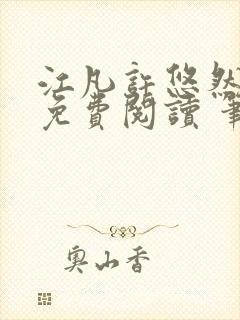 江凡許悠然
免費閱讀 筆
奧山香